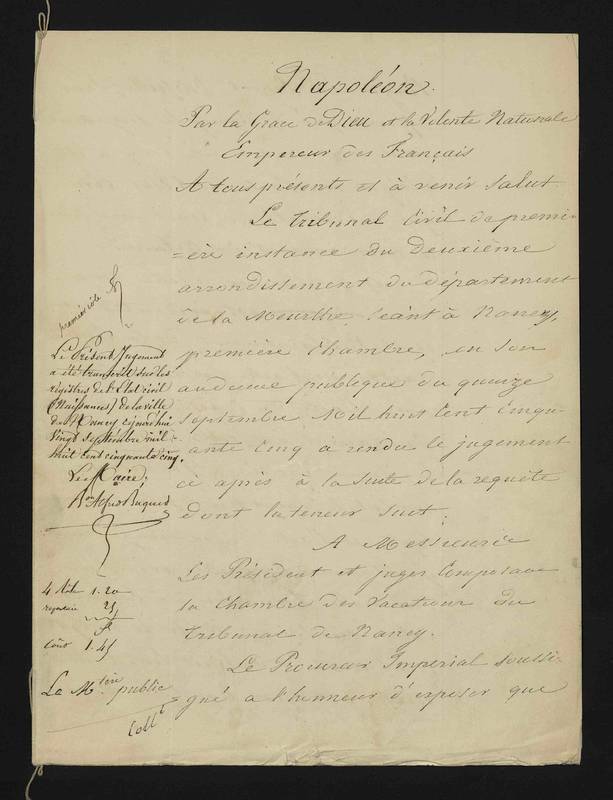 Napoléon.
Par la Grace de Dieu et la Volonté Nationale
Empereur des Français
A tous présents et à venir Salut
Le Tribunal Civil de premi-
=ère instance du Deuxième
arrondissement du département
de la Meurthe, Séant à Nancy,
première Chambre, en son
audience publique du quinze
septembre Mil huit Cent Cinqu-
ante Cinq a rendu le jugement
ci après à la Suite de la requête
dont la teneur suit:
A Messieurs
Les Président et juges Composant
la Chambre des Vacations du
Tribunal de Nancy.
Le Procureur Impérial soussi-
gné a l'honneur d'exposer que
première
Le Présent Jugement
a été transcrit sur les
registres de l'Etat civil
(Naissances) de la ville
de Nancy cejourd'hui
Vingt Septembre mil
huit Cent cinquante cinq.
Le Maire,
Bon Alfred Buquet
4 Rôle 1.20
25
Coût 1.45
Le Mtère public
Coll